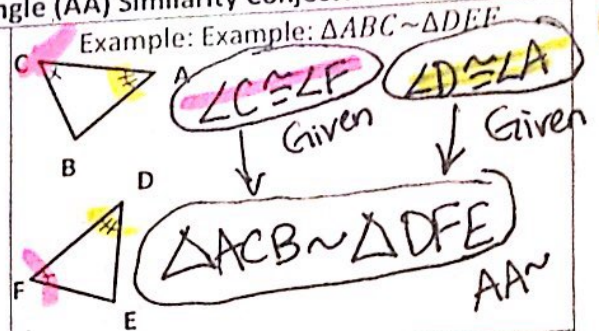 ngle (AA) Similarity Conjec
Example: Example: ΔABC~ΔDEF
C
A
B
∠C≅∠F
∠D≅∠A
Given
Given
D
F
E
ΔACB~ΔDFE
AA~